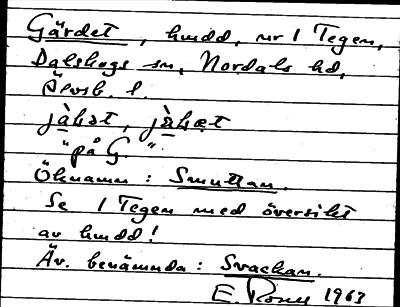 Gärdet, hmdd, nr 1 Tegen,
Dalskogs sn, Nordals hd,
Älvsb. l.
jà̱ḷət, jà̱ḷæt
"på G."
Öknamn: Smuttan.
Se 1 Tegen med översikt
av hmdd!
Äv. benämnda: Svackan.
E. 1963